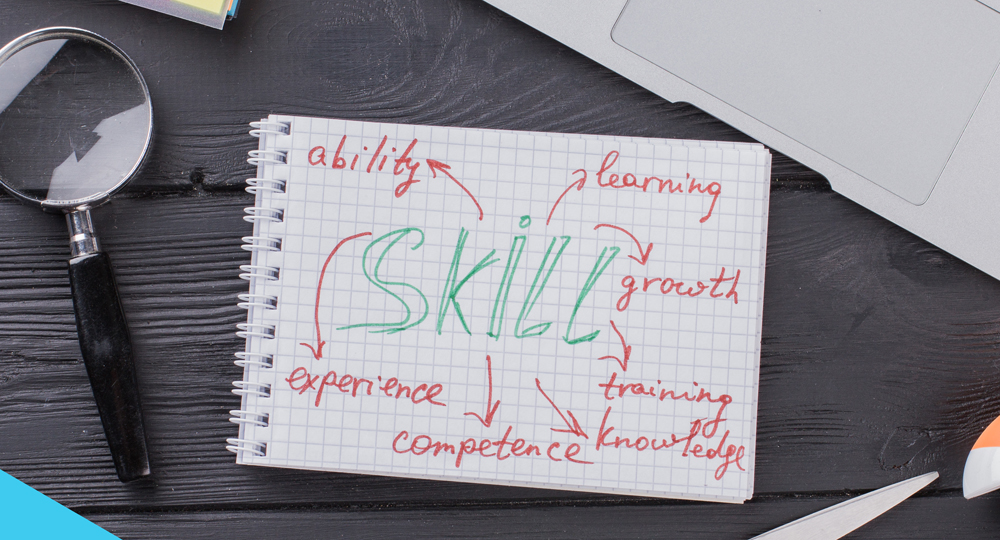 ability
learning
SKiLL
growth
experience
training
competence
knowledge